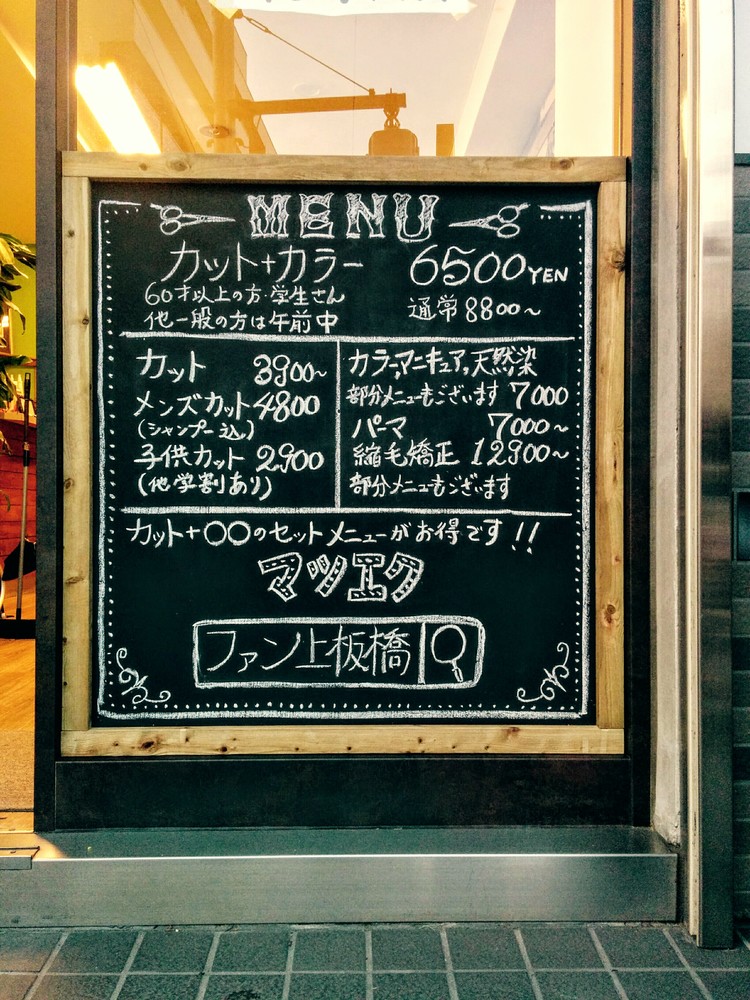 MENU
カット+カラー 6500YEN
60才以上の方・学生さん
他一般の方は午前中
通常8800~
カット 3900~
メンズカット4800
(シャンプー込)
子供カット 2900
(他学割あり)
カラー,マニキュア,天然染
部分メニューもございます 7000
パーマ 7000~
縮毛矯正 12900~
部分メニューもございます
カット+〇〇のセットメニューがお得です!!
マツエク
ファン上板橋